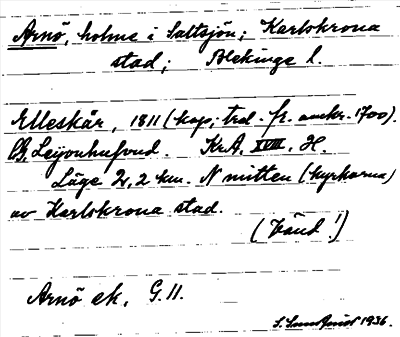 Arnö, holme i Saltsjön; Karlskrona
stad; Blekinge l.
Elleskär, 1811 (kop; trol. fr. omkr. 1700).
Leijonhufvud. KrA, XVIII, H.
Läge 2,2 km. N mitten (kyrkorna)
av Karlskrona stad.
(Vänd!)
Arnö ek, G. 11.
S. Sundquist 1936.